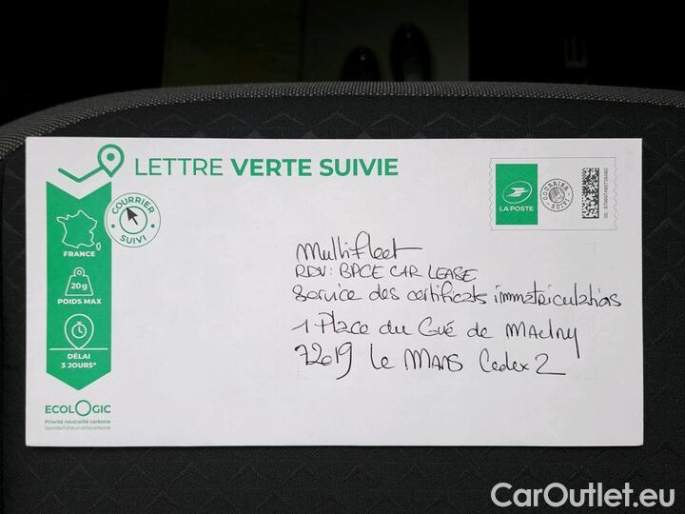 LETTRE VERTE SUIVIE
COURRIER
SUIVI
FRANCE
20g
POIDS MAX
DÉLAI
3 JOURS*
ECOLOGIC
Priorité neutralité carbone
LA POSTE
COURRIER
SUIVI
Multifleet
RDV: BPCE CAR LEASE
Service des certificats immatriculations
1 Place du Gué de MAulny
72019 Le MANS Cedex 2
CarOutlet.eu